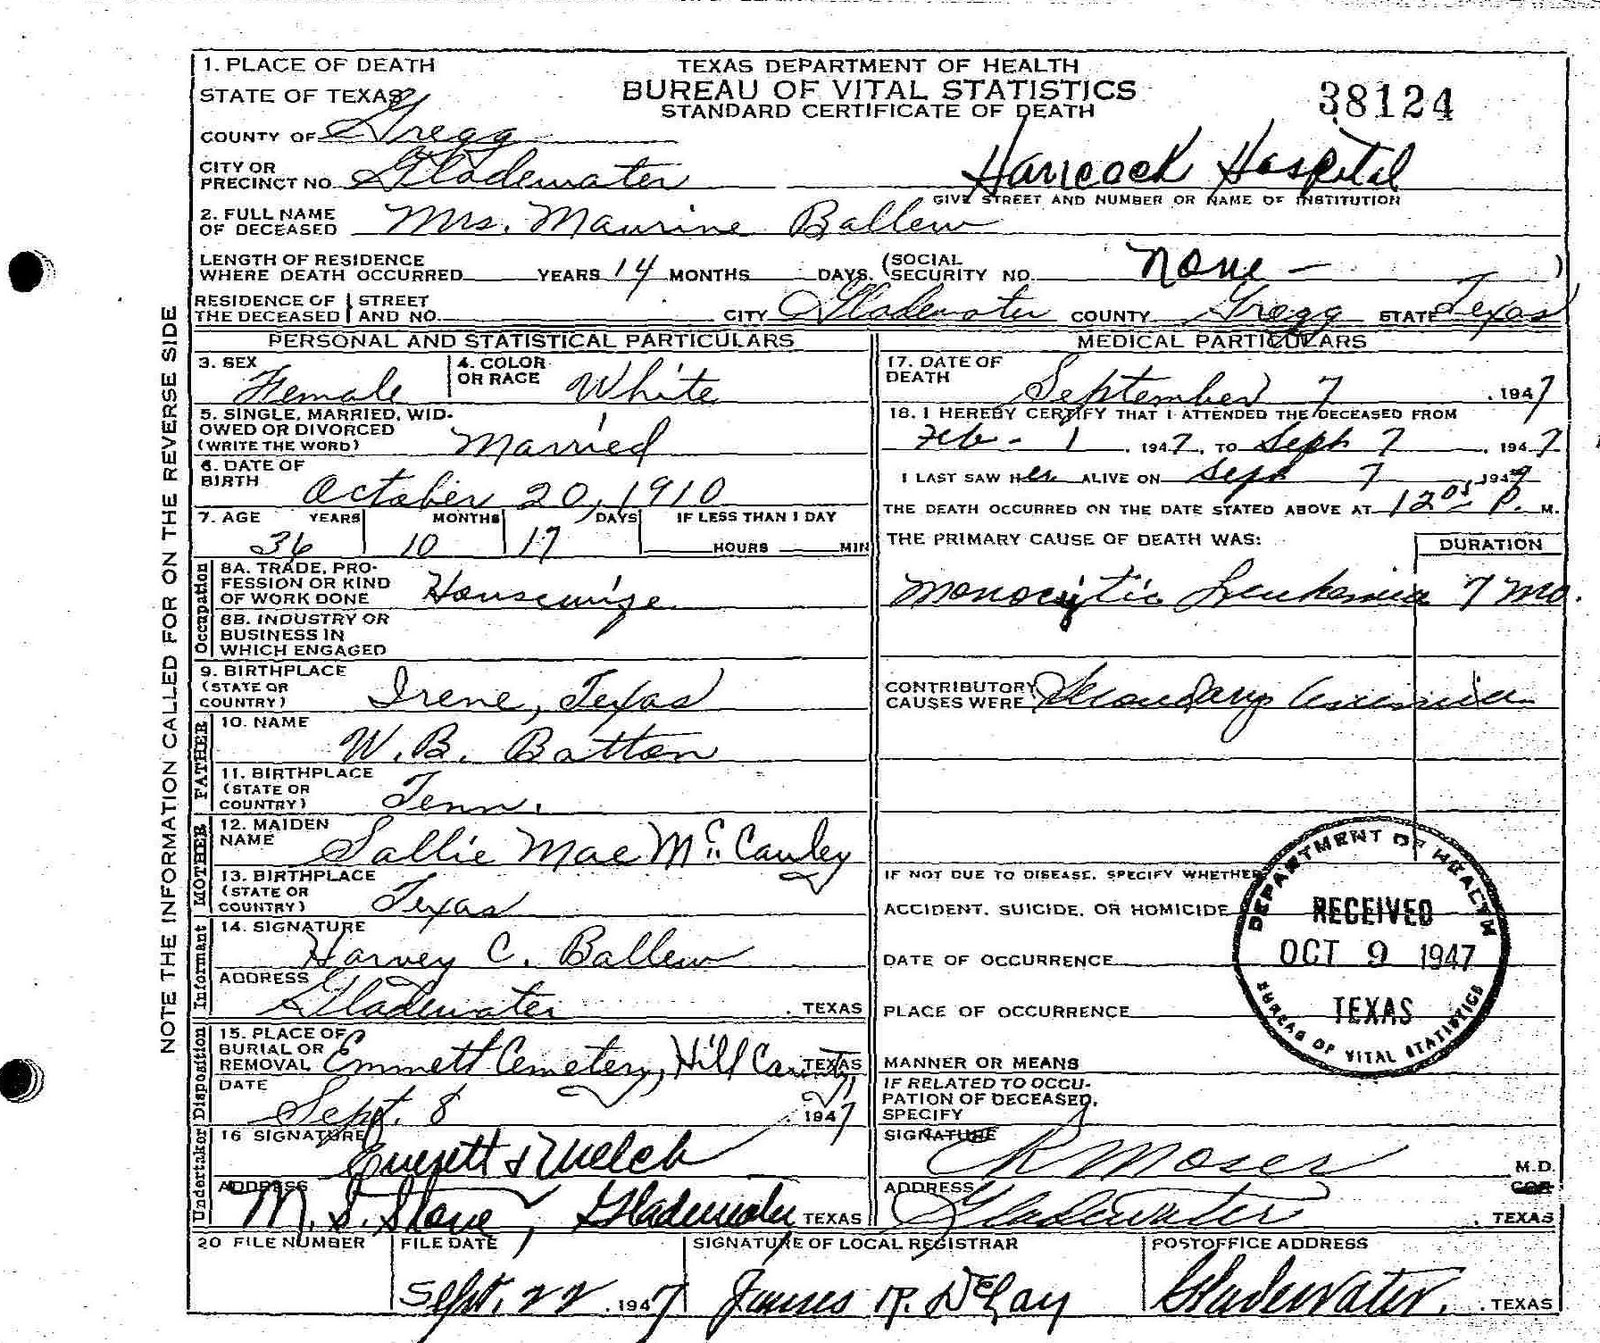 1. PLACE OF DEATH
TEXAS DEPARTMENT OF HEALTH
STATE OF TEXAS
BUREAU OF VITAL STATISTICS
38124
STANDARD CERTIFICATE OF DEATH
COUNTY OF Gregg
CITY OR
PRECINCT NO. Gladewater Hancock Hospital
GIVE STREET AND NUMBER OR NAME OF INSTITUTION
2. FULL NAME
OF DECEASED Mrs. Maurine Ballew
LENGTH OF RESIDENCE
WHERE DEATH OCCURRED YEARS 14 MONTHS DAYS. (SOCIAL SECURITY NO. None - )
RESIDENCE OF THE DECEASED STREET AND NO. CITY Gladewater COUNTY Gregg STATE Texas
PERSONAL AND STATISTICAL PARTICULARS
3. SEX Female
4. COLOR OR RACE White
5. SINGLE, MARRIED, WID-
OWED OR DIVORCED
(WRITE THE WORD) Married
6. DATE OF
BIRTH October 20, 1910
7. AGE YEARS MONTHS DAYS IF LESS THAN 1 DAY
36 10 17 HOURS MIN
Occupation
8A. TRADE, PRO-
FESSION OR KIND
OF WORK DONE Housewife
8B. INDUSTRY OR
BUSINESS IN
WHICH ENGAGED
9. BIRTHPLACE
(STATE OR
COUNTRY) Irene, Texas
FATHER
10. NAME W. B. Batton
11. BIRTHPLACE
(STATE OR
COUNTRY) Tenn.
MOTHER
12. MAIDEN
NAME Sallie Mae McCauley
13. BIRTHPLACE
(STATE OR
COUNTRY) Texas
Informant
14. SIGNATURE
Harvey C. Ballew
ADDRESS
Gladewater . TEXAS
Disposition
15. PLACE OF
BURIAL OR
REMOVAL Emmett Cemetery, Hill County, TEXAS
DATE
Sept. 8 . 1947
Undertaker
16 SIGNATURE
Everett & Welch
ADDRESS
M. S. Stone, Gladewater TEXAS
MEDICAL PARTICULARS
17. DATE OF
DEATH September 7 . 1947
18. I HEREBY CERTIFY THAT I ATTENDED THE DECEASED FROM
Feb - 1 . 1947. TO Sept 7 . 1947
I LAST SAW HER ALIVE ON Sept 7 1947
THE DEATH OCCURRED ON THE DATE STATED ABOVE AT 12 05 P. M.
THE PRIMARY CAUSE OF DEATH WAS: DURATION
Monocytic Leukemia 7 Mo.
CONTRIBUTORY
CAUSES WERE Secondary Anemia
IF NOT DUE TO DISEASE, SPECIFY WHETHER
ACCIDENT, SUICIDE, OR HOMICIDE
DATE OF OCCURRENCE
PLACE OF OCCURRENCE
MANNER OR MEANS
IF RELATED TO OCCU-
PATION OF DECEASED,
SPECIFY
DEPARTMENT OF HEALTH
RECEIVED
OCT 9 1947
TEXAS
BUREAU OF VITAL STATISTICS
SIGNATURE
Moser M.D.
ADDRESS
Gladewater . TEXAS
20 FILE NUMBER
FILE DATE
Sept. 22 . 1947
SIGNATURE OF LOCAL REGISTRAR
James R.
POSTOFFICE ADDRESS
Gladewater. . TEXAS
NOTE THE INFORMATION CALLED FOR ON THE REVERSE SIDE